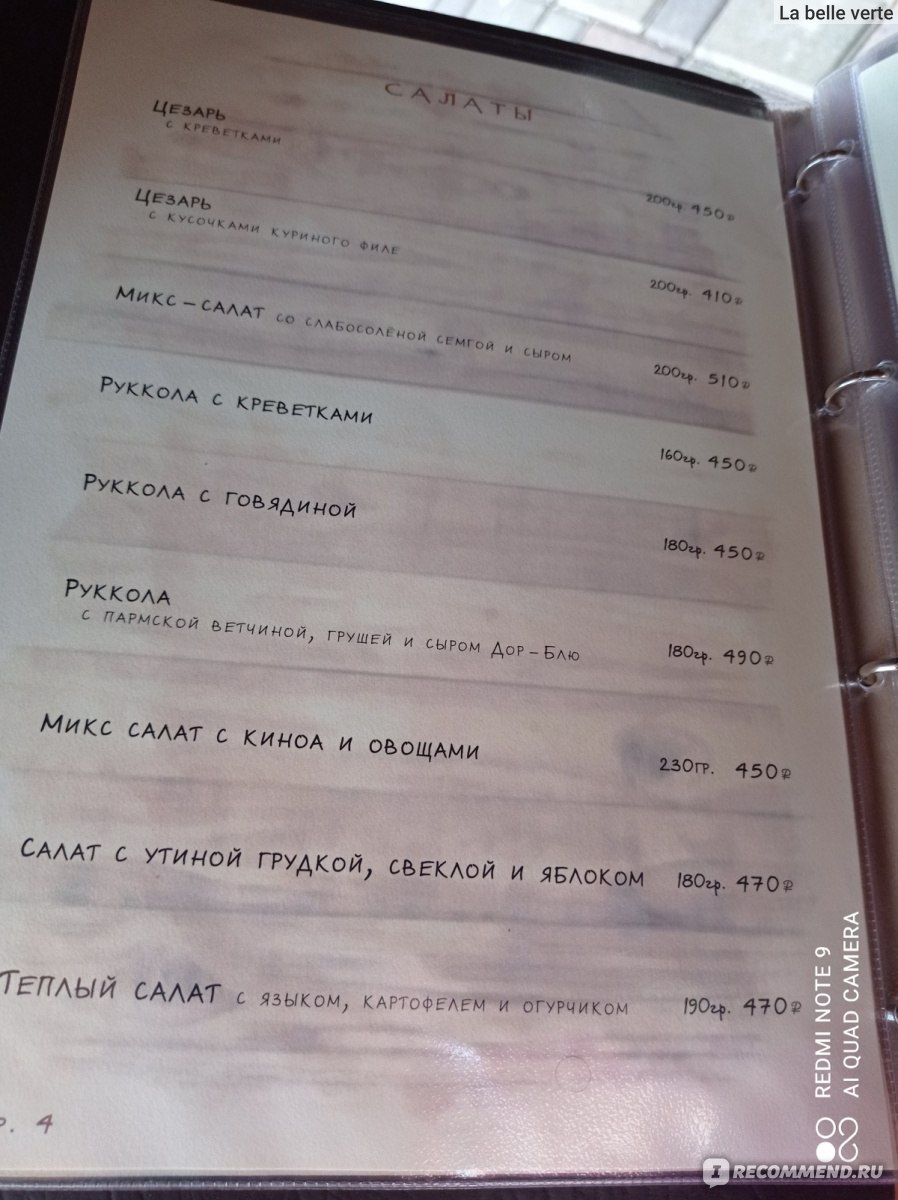 La belle verte
САЛАТЫ
ЦЕЗАРЬ
С КРЕВЕТКАМИ
200гр. 450₽
ЦЕЗАРЬ
С КУСОЧКАМИ КУРИНОГО ФИЛЕ
200гр. 410₽
МИКС – САЛАТ СО СЛАБОСОЛЁНОЙ СЕМГОЙ И СЫРОМ
200гр. 510₽
РУККОЛА С КРЕВЕТКАМИ
160гр. 450₽
РУККОЛА С ГОВЯДИНОЙ
180гр. 450₽
РУККОЛА
С ПАРМСКОЙ ВЕТЧИНОЙ, ГРУШЕЙ И СЫРОМ ДОР – БЛЮ
180гр. 490₽
МИКС САЛАТ С КИНОА И ОВОЩАМИ
230ГР. 450₽
САЛАТ С УТИНОЙ ГРУДКОЙ, СВЕКЛОЙ И ЯБЛОКОМ 180гр. 470₽
ТЕПЛЫЙ САЛАТ С ЯЗЫКОМ, КАРТОФЕЛЕМ И ОГУРЧИКОМ 190гр. 470₽
р. 4
REDMI NOTE 9
AI QUAD CAMERA
IRECOMMEND.RU